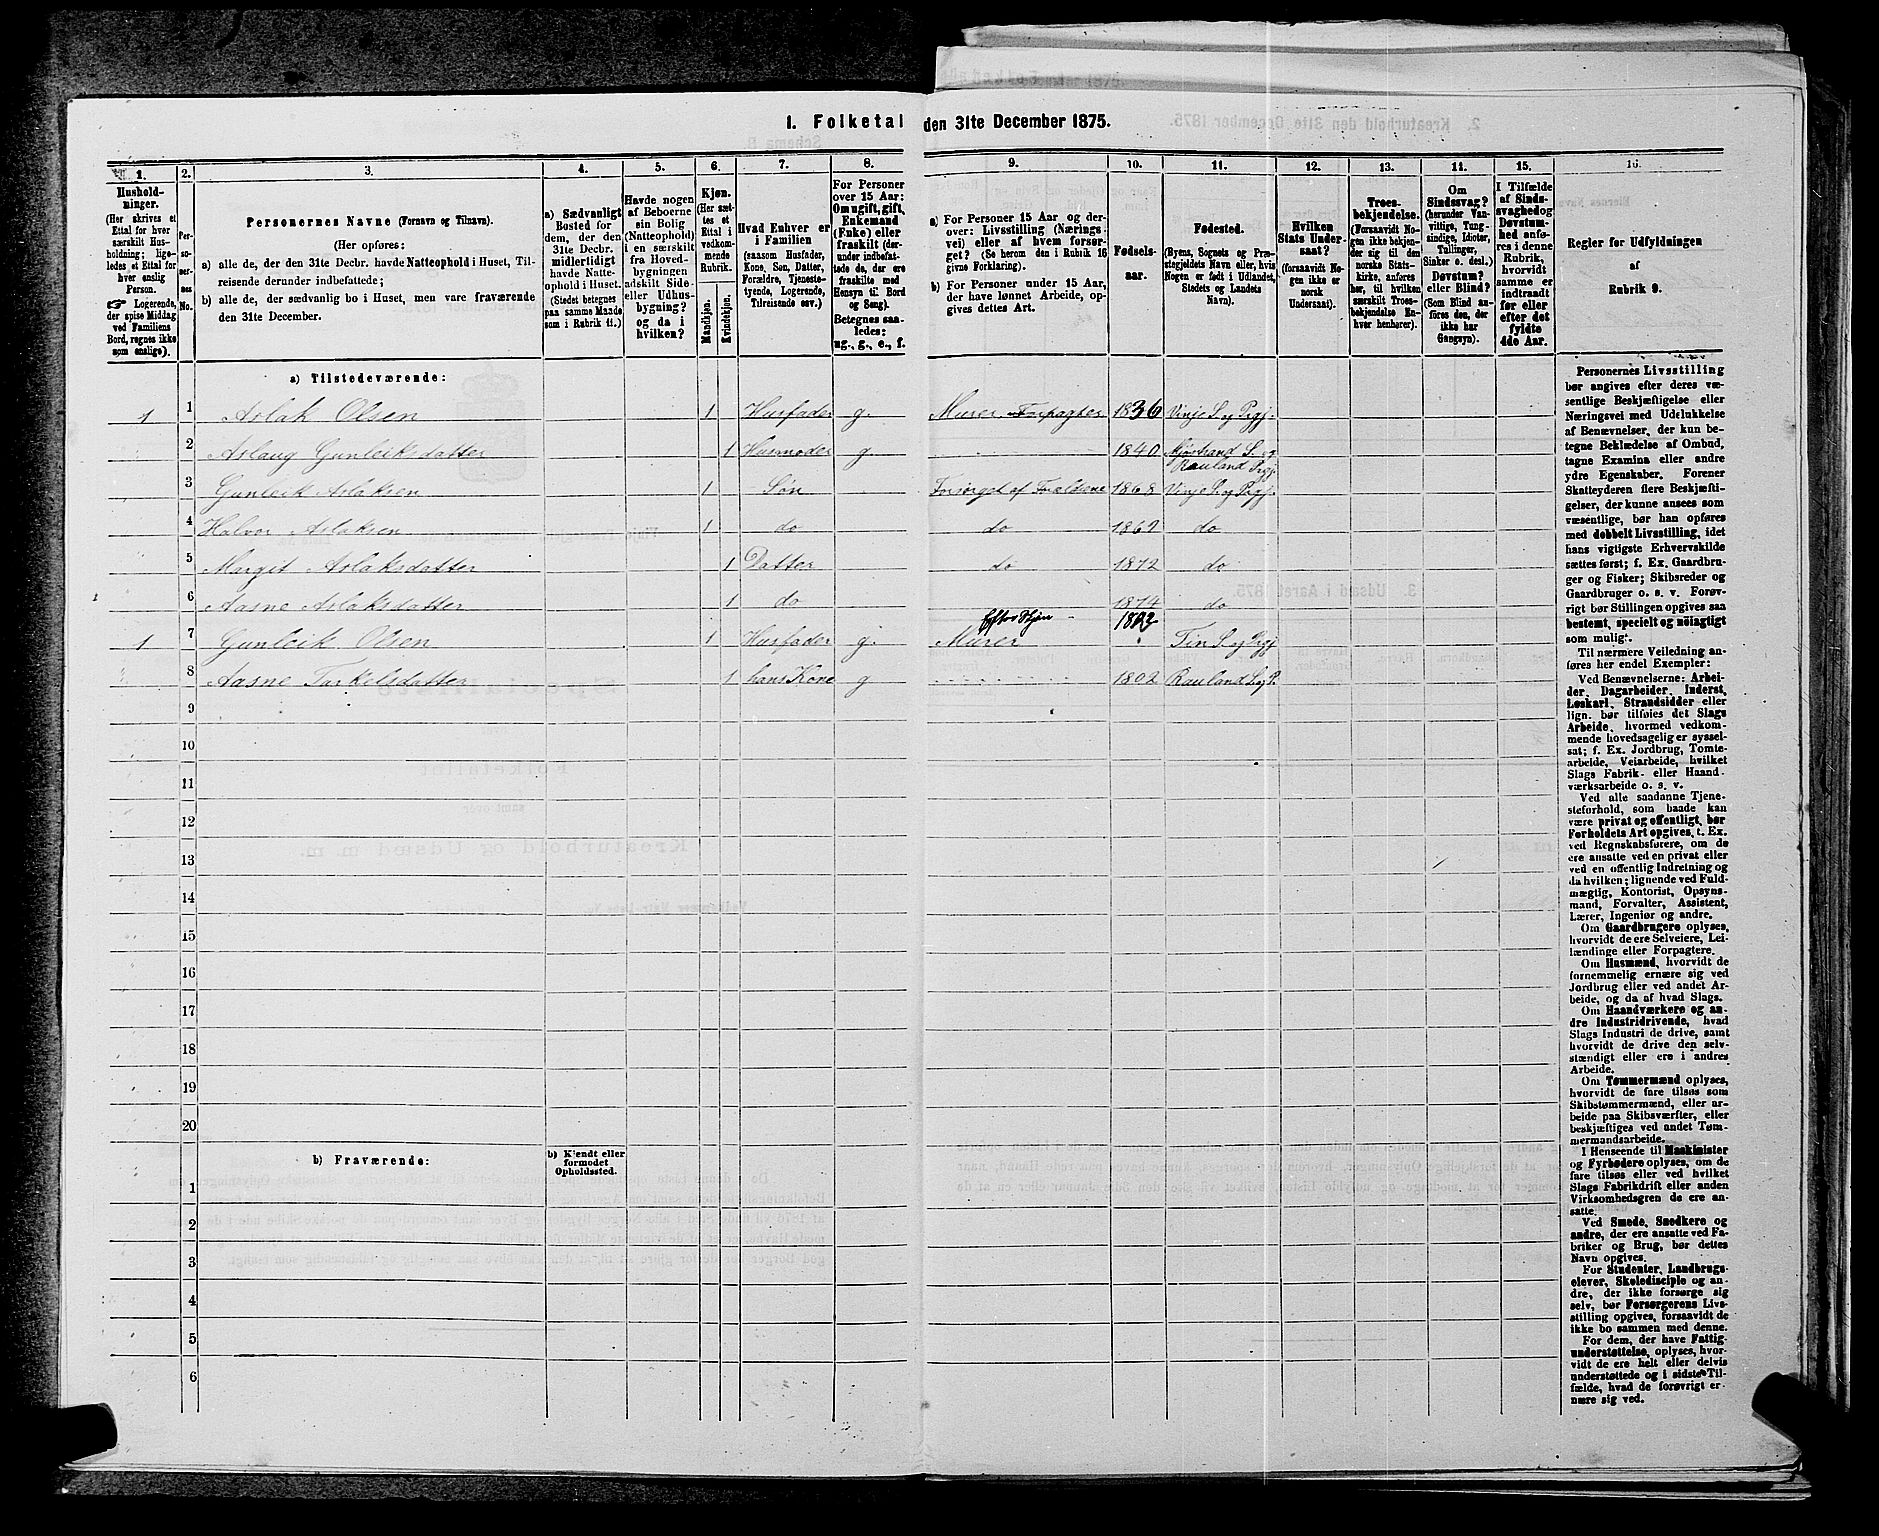 1. Folketal den 31te December 1875.
1. 2. 3. 4. 5. 6. 7. 8. 9. 10. 11. 12. 13. 14. 15. 16.
Hushold-
ninger.
(Her skrives et
Ettal for hver
særskilt Hus-
holdning; lige-
ledes et Ettal for
hver enslig
Person.
☞ Logerende,
der spise Middag
ved Familiens
Bord, regnes ikke
som enslige).
Per-
so-
ner-
nes
No.
Personernes Navne (Fornavn og Tilnavn).
(Her opføres:
a) alle de, der den 31te Decbr. havde Natteophold i Huset, Til-
reisende derunder indbefattede;
b) alle de, der sædvanlig bo i Huset, men vare fraværende
den 31te December.
a) Sædvanligt
Bosted for
dem, der den
31te Decbr.
midlertidigt
havde Natte-
ophold i Huset.
(Stedet betegnes
paa samme Maade
som i Rubrik 11.)
Havde nogen
af Beboerne
sin Bolig
(Natteophold)
i en særskilt
fra Hoved-
bygningen
adskilt Side-
eller Udhus-
bygning?
og da i
hvilken?
Kjøn.
(Her sæt-
tes et
Ettal i
vedkom-
mende
Rubrik.
Mandkjøn.
Kvindekjøn.
Hvad Enhver er
i Familien
(saasom Husfader,
Kone, Søn, Datter,
Forældre, Tjeneste-
tyende, Logerende,
Tilreisende osv.)
For Personer
over 15 Aar:
Om ugift, gift,
Enkemand
(Enke) eller
fraskilt (der-
under indbefat-
tede de, der ere
fraskilte med
Hensyn til Bord
og Seng).
Betegnes saa-
ledes:
ug., g., e., f.
a) For Personer 15 Aar og der-
over: Livsstilling (Nærings-
vei) eller af hvem forsør-
get? (Se herom den i Rubrik 16
givne Forklaring).
b) For Personer under 15 Aar,
der have lønnet Arbeide, op-
gives dettes Art.
Fødsels-
aar.
Fødested.
(Byens, Sognets og Præ-
stegjeldets Navn eller, hvis
Nogen er født i Udlandet,
Stedets og Landets
Navn).
Hvilken
Stats Under-
saat?
(forsaavidt No-
gen ikke er
norsk
Undersaat).
Troes-
bekjendelse.
(Forsaavidt No-
gen ikke bekjen-
der sig til den
norske Stats-
kirke, anføres
her, til hvilken
særskilt Troes-
bekjendelse En-
hver henhører).
Om
Sindssvag?
(herunder Van-
vittige, Tung-
sindige, Idioter,
Tullinger,
Sinker o. desl.)
Døvstum?
eller Blind?
(Som Blind an-
føres den, der
ikke har
Gangsyn).
I Tilfælde
af Sinds-
svaghed og
Døvstum-
hed anfø-
res i denne
Rubrik,
hvorvidt
samme er
indtraadt
før eller
efter det
fyldte
4de Aar.
Regler for Udfyldningen
af
Rubrik 9.
a) Tilstedeværende:
1 1 Aslak Olsen 1 Husfader g. Murer Forpagter 1836 Vinje S. og Prgj.
2 Aslaug Gunleiksdatter 1 Husmoder g 1840 Mjøstrand S. og
Rauland Prgj.
3 Gunleik Aslaksen 1 Søn Forsørget af Forældrene 1868 Vinje S. og Prgj.
4 Halvor Aslaksen 1 do do do
5 Margit Aslaksdatter 1 Datter do 1872 do
6 Aasne Aslaksdatter 1 do 1874 do
1 7 Gunleik Olsen 1 Husfader g. Murer Tin S. og Prgj
8 Aasne Tarkelsdatter 1 hans Kone g 1802 Rauland S. og P.
9
10
11
12
13
14
15
16
17
18
19
20
b) Fraværende:
b) Kjendt eller
formodet
Opholdssted.
1
2
3
4
5
6
Personernes Livsstilling
bør angives efter deres væ-
sentlige Beskjæftigelse eller
Næringsvei med Udelukkelse
af Benævnelser, der kun be-
tegne Beklædelse af Ombud,
tagne Examina eller andre
ydre Egenskaber. Forener
Skatteyderen flere Beskjæfti-
gelser, der kunne ansees som
væsentlige, bør han opføres
med dobbelt Livsstilling, idet
hans vigtigste Erhvervskilde
sættes først; f. Ex. Gaardbru-
ger og Fisker; Skibsreder og
Gaardbruger o. s. v. Forøv-
rigt bør Stillingen opgives saa
bestemt, specielt og nøiagtigt
som mulig.
Til nærmere Veiledning an-
føres her endel Exempler:
Ved Benævnelserne: Arbei-
der, Dagarbeider, Inderst,
Løskarl, Strandsidder eller
lign. bør tilføies det Slags
Arbeide, hvormed vedkom-
mende hovedsagelig er syssel-
sat; f. Ex. Jordbrug, Tomte-
arbeide, Veiarbeide, hvilket
Slags Fabrik- eller Haand-
værksarbeide o. s. v.
Ved alle saadanne Tjene-
steforhold, som baade kan
være privat og offentligt, bør
Forholdets Art opgives, t. Ex.
ved Regnskabsførere, om de
ere ansatte ved en privat eller
ved en offentlig Indretning og
da hvilken; lignende ved Fuld-
mægtig, Kontorist, Opsyns-
mand, Forvalter, Assistent,
Lærer, Ingeniør og andre.
Om Gaardbrugere oplyses,
hvorvidt de ere Selveiere, Lei-
lændinge eller Forpagtere.
Om Husmænd, hvorvidt de
fornemmelig ernære sig ved
Jordbrug eller ved andet Ar-
beide, og da af hvad Slags.
Om Haandværkere og an-
dre Industridrivende, hvad
Slags Industri de drive, samt
hvorvidt de drive den selv-
stændigt eller ere i andres
Arbeide.
Om Tømmermænd oplyses,
hvorvidt de fare tilsøs som
Skibstømmermænd, eller ar-
beide paa Skibsværfter, eller
beskjæftiges ved andet Tøm-
mermandsarbeide.
I Henseende til Maskinister
og Fyrbødere oplyses, om de
fare tilsøs eller ved hvilket
Slags Fabrikdrift eller anden
Virksomhedsgren de ere an-
satte.
Ved Smede, Snedkere og
andre, der ere ansatte ved Fa-
briker og Brug, bør dettes
Navn opgives.
For Studenter, Landbrugs-
elever, Skoledisciple og an-
dre, der ikke forsørge sig
selv, bør Forsørgerens Livs-
stilling opgives, forsaavidt de
ikke bo sammen med denne.
For dem, der have Fattig-
understøttelse, oplyses, hvor-
vidt de ere helt eller delvis
understøttede og i sidste Til-
fælde, hvad de forøvrigt er-
nære sig ved.